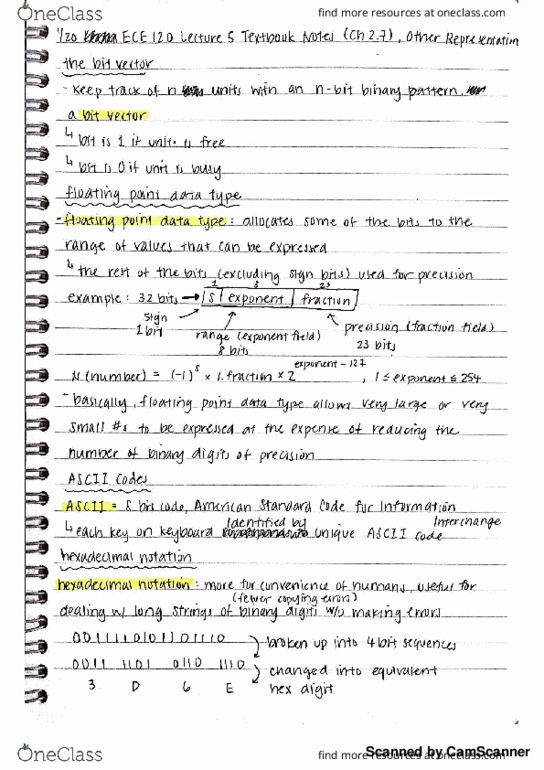 OneClass
find more resources at oneclass.com
1/20 ECE 120 Lecture 5 Textbook Notes (Ch 2.7), Other Representation
the bit vector
- keep track of n units with an n-bit binary pattern,
a bit vector
↳ bit is 1 if unit is free
↳ bit is 0 if unit is busy
floating point data type
- floating point data type: allocates some of the bits to the
range of values that can be expressed
↳ the rest of the bits (excluding sign bits) used for precision
1 8 23
example: 32 bits → | S | exponent | fraction |
sign
1 bit
range (exponent field)
8 bits
precision (fraction field)
23 bits
N (number) = (-1)^s × 1.fraction × 2^exponent - 127, 1 ≤ exponent ≤ 254
- basically, floating point data type allows very large or very
small #s to be expressed at the expense of reducing the
number of binary digits of precision
ASCII Codes
ASCII = 8 bit code, American Standard Code for Information
Interchange
↳ each key on keyboard identified by unique ASCII code
hexadecimal notation
hexadecimal notation: more for convenience of humans, useful for
(fewer copying errors)
dealing w/ long strings of binary digits w/o making errors
0011110101101110
broken up into 4 bit sequences
0011 1101 0110 1110
changed into equivalent
3 D 6 E hex digit
OneClass
find more resources at oneclass.com
Scanned by CamScanner